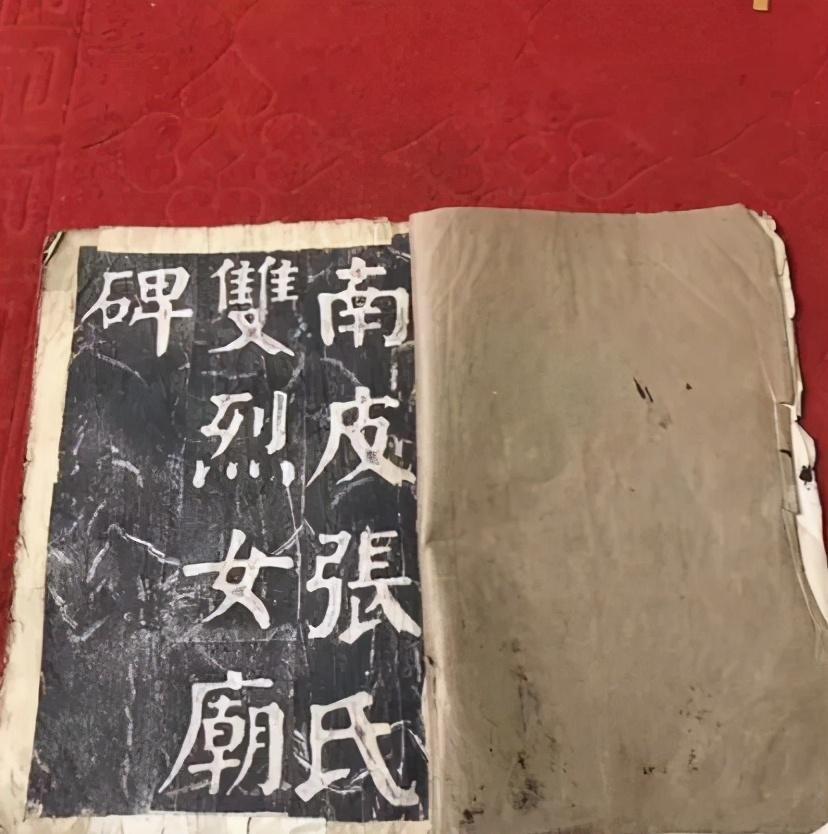 南皮張氏
雙烈女廟
碑